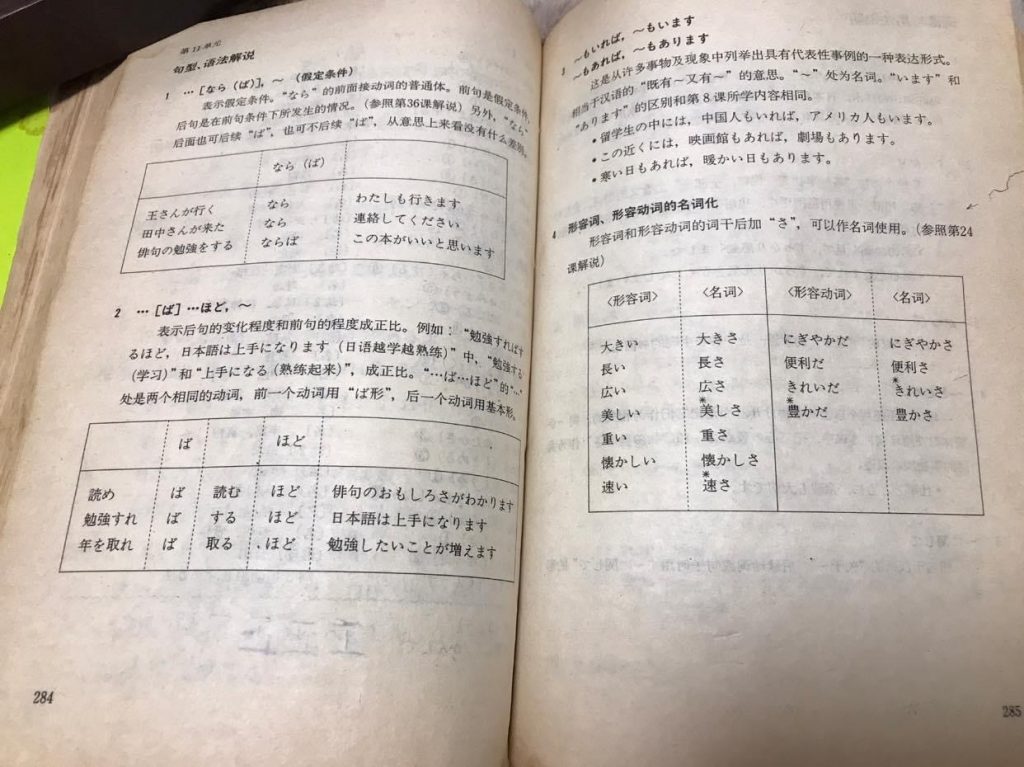 第11单元
句型、语法解说
1 …[なら（ば）]，～（假定条件）
表示假定条件。“なら”的前面接动词的普通体。前句是假定条件，
后句是在前句条件下所发生的情况。（参照第36课解说）另外，“なら”
后面也可后续“ば”，也可不后续“ば”，从意思上来看没有什么差别。
なら（ば）
王さんが行く なら わたしも行きます
田中さんが来た なら 連絡してください
俳句の勉強をする ならば この本がいいと思います
2 …[ば]…ほど，～
表示后句的变化程度和前句的程度成正比。例如：“勉強すればす
るほど，日本語は上手になります（日语越学越熟练）”中，“勉強する
（学习）”和“上手になる（熟练起来）”，成正比。“…ば…ほど”的“…”
处是两个相同的动词，前一个动词用“ば形”，后一个动词用基本形。
ば ほど
読め ば 読む ほど 俳句のおもしろさがわかります
勉強すれ ば する ほど 日本語は上手になります
年を取れ ば 取る ほど 勉強したいことが増えます
284
～もいれば，～もいます
3 ～もあれば，～もあります
这是从许多事物及现象中列举出具有代表性事例的一种表达形式。
相当于汉语的“既有～又有～”的意思。“～”处为名词。“います”和
“あります”的区别和第8课所学内容相同。
•留学生の中には，中国人もいれば，アメリカ人もいます。
•この近くには，映画館もあれば，劇場もあります。
•寒い日もあれば，暖かい日もあります。
4 形容词、形容动词的名词化
形容词和形容动词的词干后加“さ”，可以作名词使用。（参照第24
课解说）
〈形容词〉 〈名词〉 〈形容动词〉 〈名词〉
大きい 大きさ にぎやかだ にぎやかさ
長い 長さ 便利だ 便利さ
広い 広さ きれいだ *きれいさ
美しい *美しさ *豊かだ 豊かさ
重い 重さ
懐かしい 懐かしさ
速い *速さ
285